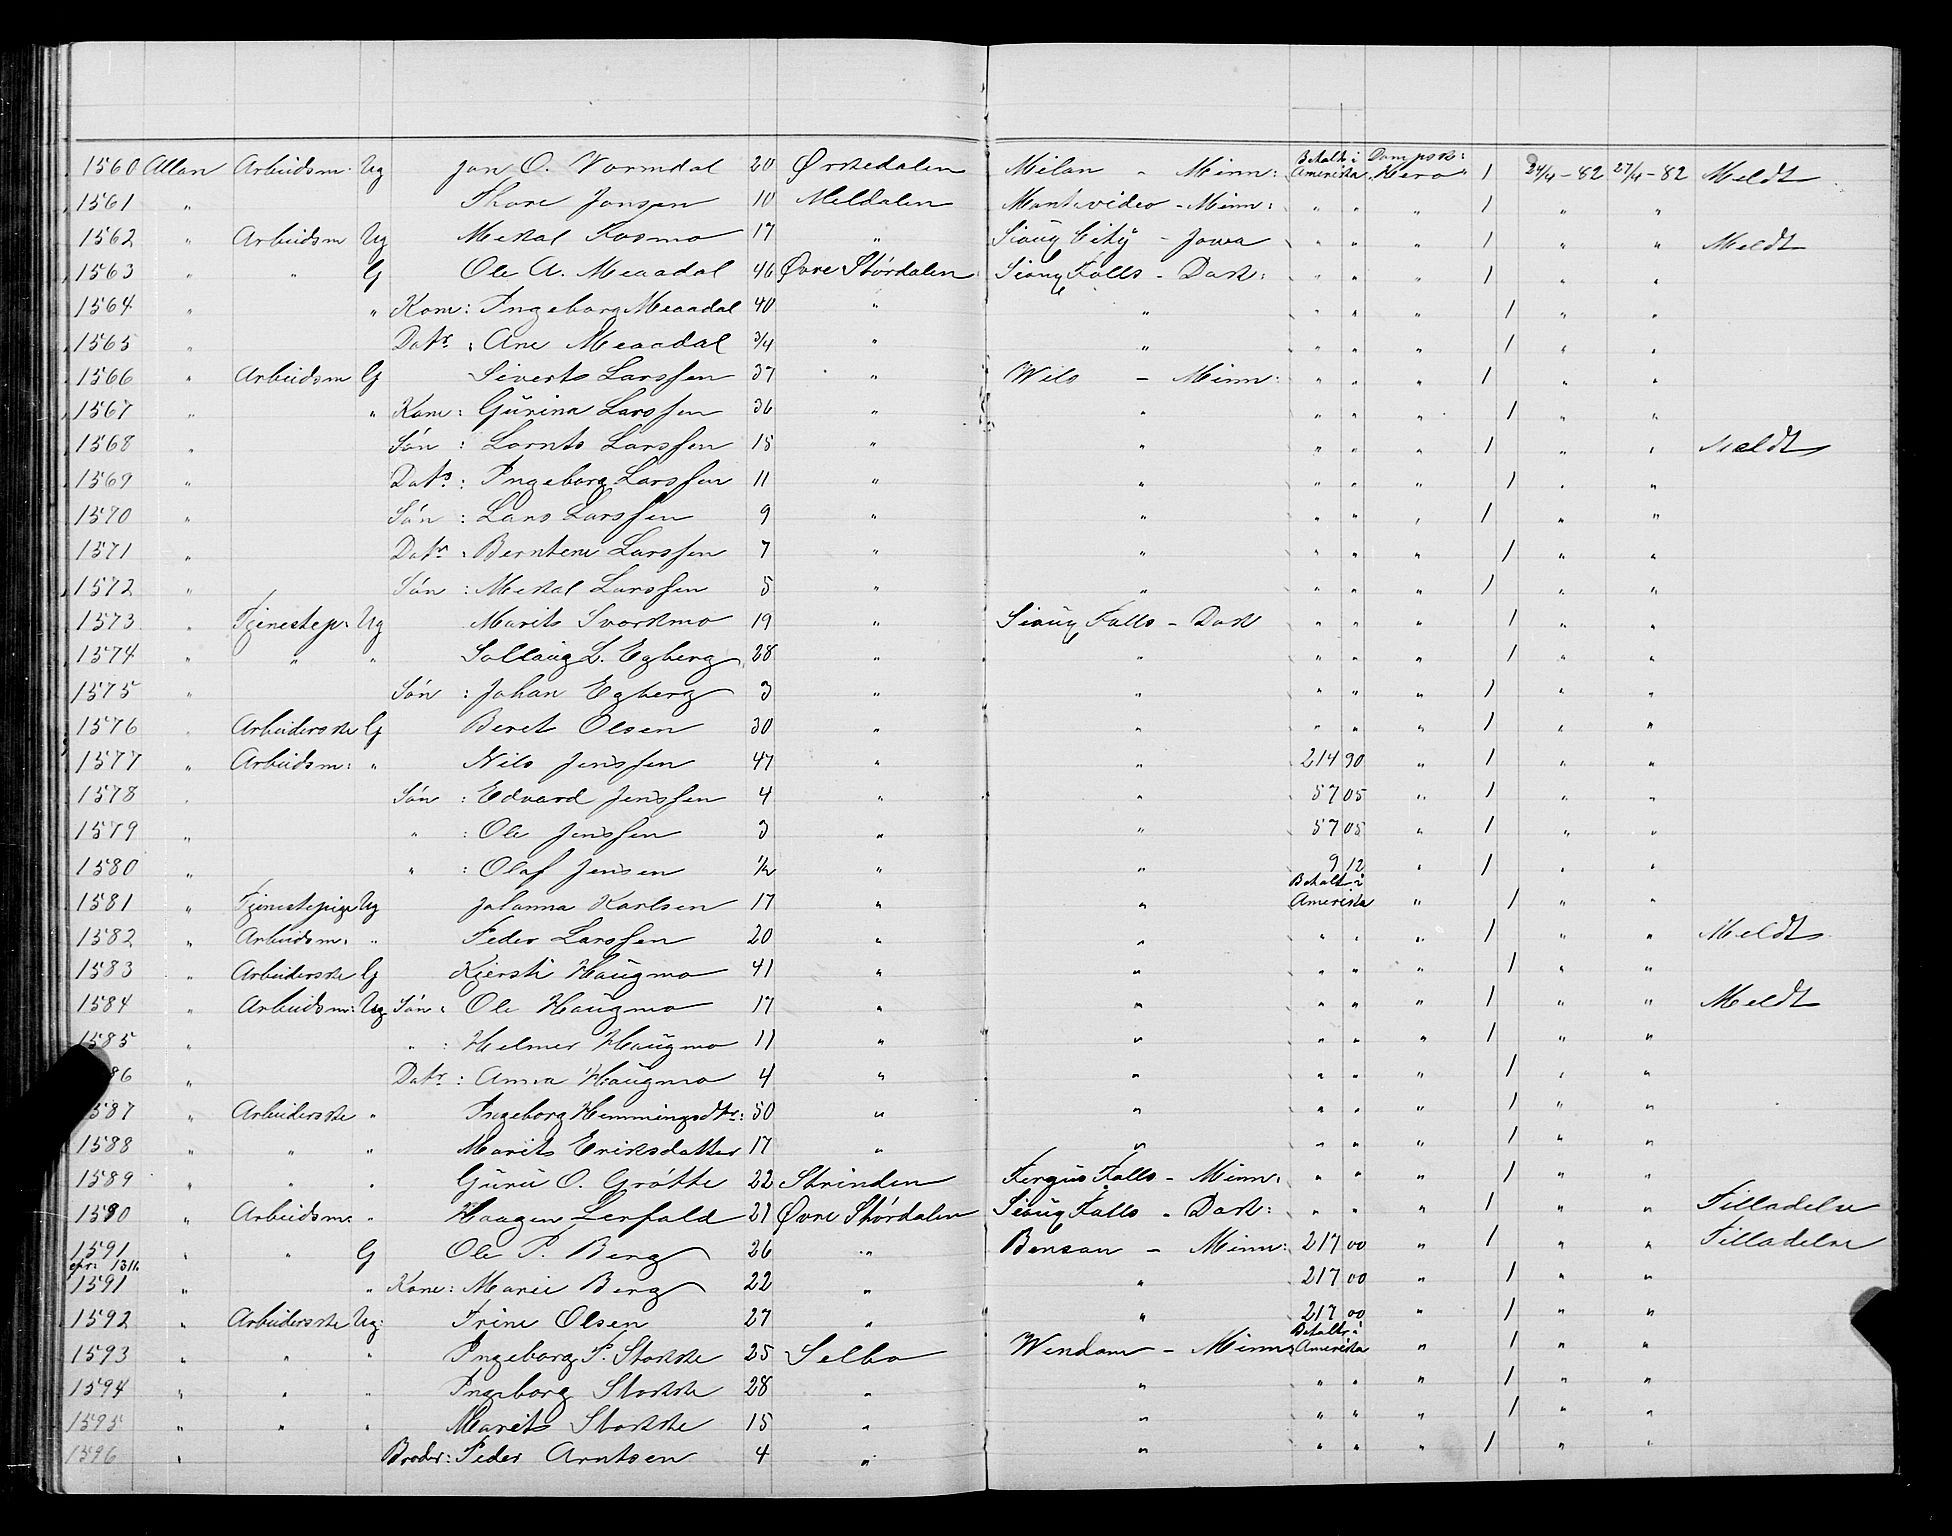 1560 Allan Arbeidsm. Ug Jon O. Vormdal 20 Ørkedalen Milan - Minn: Betalt i Amerika Dampsk: "Hero" 1 24/4 - 82 27/4 - 82 Meldt
1561 " Thore Jonsen 10 Meldalen Montevideo - Minn: " " " 1 " "
1562 " Arbeidsm Ug Mekal Kosmo 17 " Sioux City - Jowa " " " 1 " " Meldt
1563 " " G Ole A. Meaadal 46 Øvre Stördalen Sioux Falls - Dak: " " " 1 " "
1564 " " Kone: Ingeborg Meaadal 40 " " " " " 1 " "
1565 " Datr: Ane Meaadal 3/4 " " " " " 1 " "
1566 " Arbeidsm G Siverts Larssen 37 " Wils - Minn: " " " 1 " "
1567 " " Kone: Gurina Larssen 36 " " " " " 1 " "
1568 " Sön: Lornts Larssen 15 " " " " " 1 " " Meldt
1569 " Datr: Ingeborg Larssen 11 " " " " " 1 " "
1570 " Sön: Lars Larssen 9 " " " " " 1 " "
1571 " Datr: Berntene Larssen 7 " " " " " 1 " "
1572 " Sön: Mekal Larssen 5 " " " " " 1 " "
1573 " Tjenestep: Ug Marits Svarkmo 19 " Sioux Falls - Dak " " " 1 " "
1574 " " " Sollaug L. Egberg 28 " " " " " 1 " "
1575 " Sön: Johan Egberg 3 " " " " " 1 " "
1576 " Arbeiderske G Beret Olsen 30 " " " " " 1 " "
1577 " Arbeidsm: " Nils Jenssen 47 " " 214 90 " 1 " "
1578 " Sön: Edvard Jenssen 4 " " 57 05 " 1 " "
1579 " " : Ole Jenssen 3 " " 57 05 " 1 " "
1580 " " : Olaf Jensen 1/2 " " 9 12 " 1 " "
1581 " Tjenestepige Ug Johanna Karlsen 17 " " Betalt i Amerika " 1 " "
1582 " Arbeidsm: " Peder Larssen 20 " " " " " 1 " " Meldt
1583 " Arbeiderske G Kjersti Haugmo 41 " " " " " 1 " "
1584 " Arbeidsm: Ug Sön: Ole Haugmo 17 " " " " " 1 " " Meldt
1585 " " : Helmer Haugmo 11 " " " " " 1 " "
86 " Datr: Anna Haugmo 4 " " " " " 1 " "
587 " Arbeiderske " Ingeborg Hemmingsdtr: 50 " " " " " 1 " "
1588 " " " Marits Eriksdatter 17 " " " " " 1 " "
1589 " " " Guru O. Grötte 22 Strinden Fergus Falls - Minn: " " " 1 " "
1590 " Arbeidsm. " Haagen Lerfald 21 Øvre Stördalen Sioux Falls - Dak: " " " 1 " " Tilladelse
1591 " " G Ole P. Berg 26 " Benson - Minn: 217 00 " 1 " " Tilladelse
1591 " " Kone: Marie Berg 22 " " 217 00 " 1 " "
1592 " Arbeiderske Ug: Trine Olsen 27 " " 217 00 " 1 " "
1593 " " " Ingeborg P. Stokke 25 Selbo Windom - Minn: Betalt i Amerika " 1 " "
1594 " " " Ingeborg Stokke 28 " " " " " 1 " "
1595 " " " Marits Stokke 15 " " " " " 1 " "
1596 " Broder: Peder Arntsen 4 " " " " " 1 " "